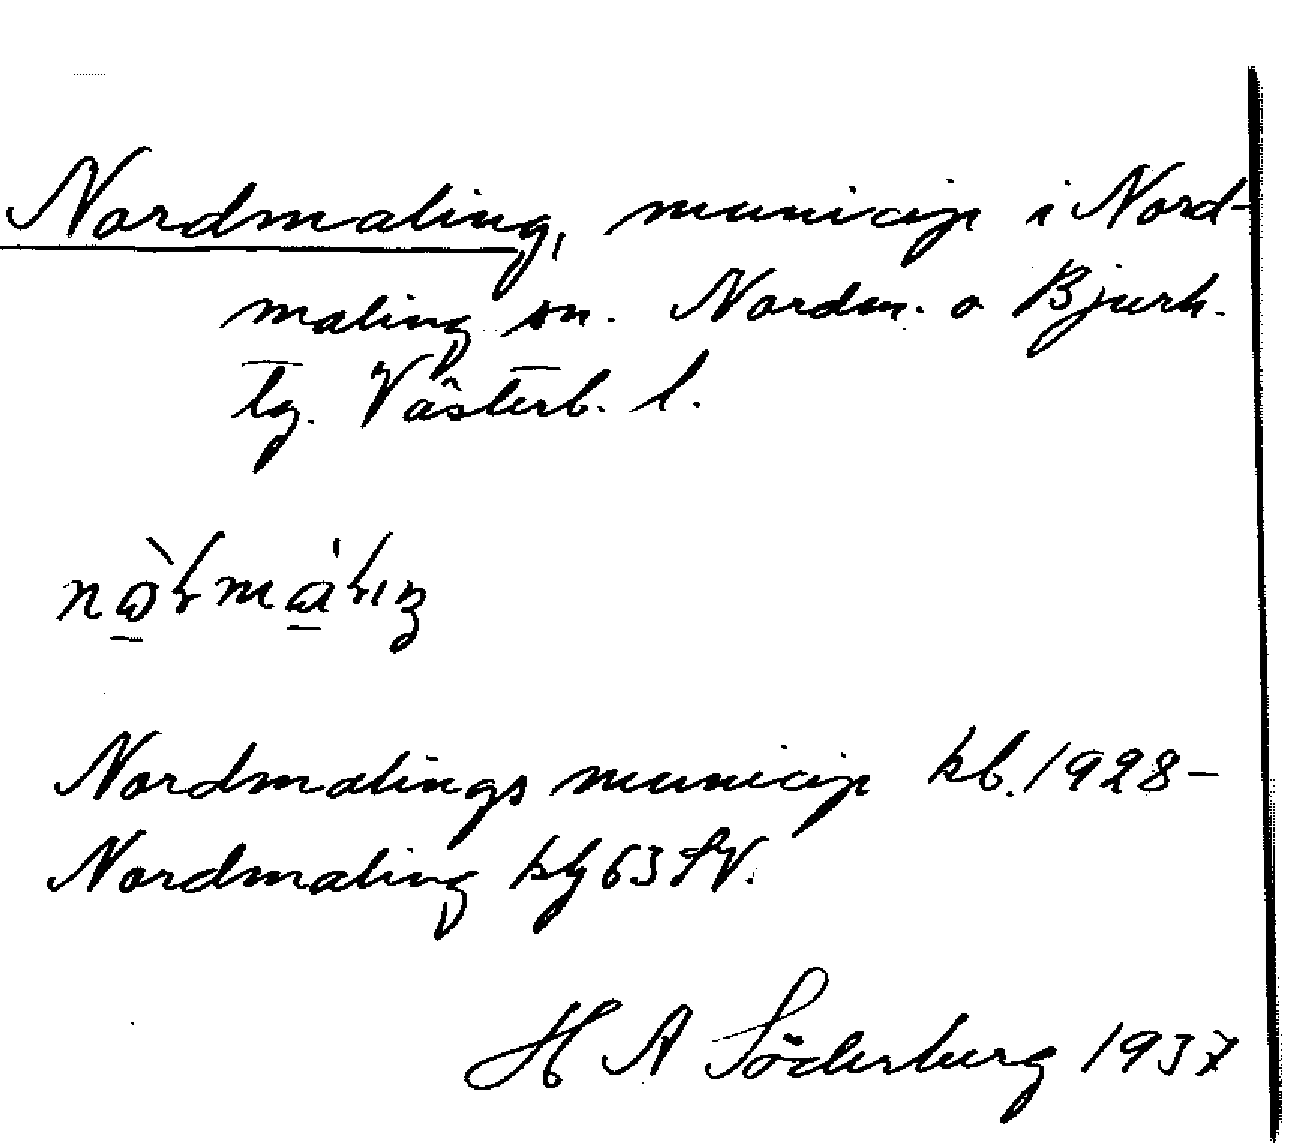 Nordmaling, municip i Nord-
maling sn. Nordm. o Bjurh.
tg. Västerb. l.
Nordmalings municip kb. 1928-
Nordmaling kbl 63 SV.
H A Söderberg 1937